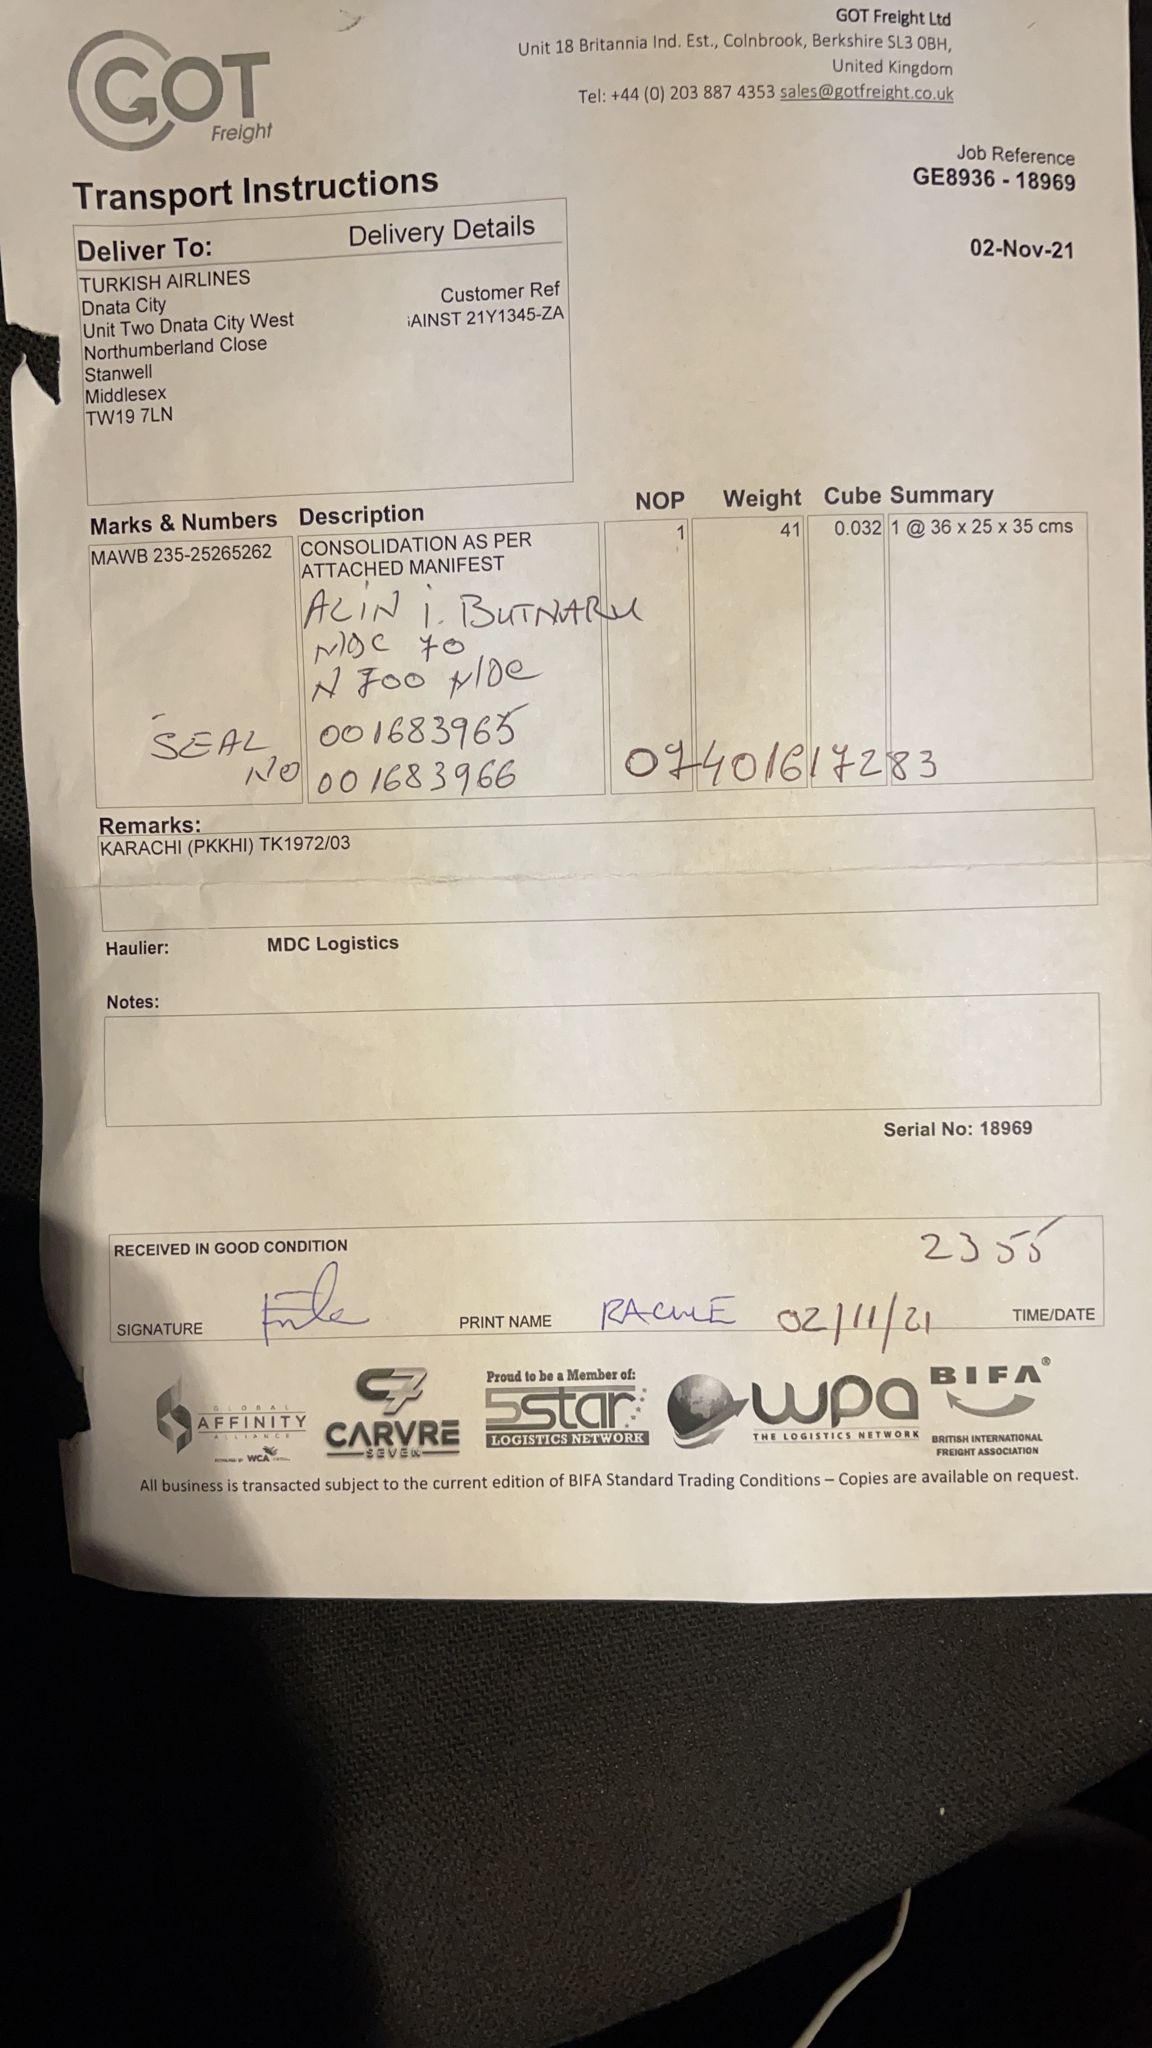 GOT
Freight
GOT Freight Ltd
Unit 18 Britannia Ind. Est., Colnbrook, Berkshire SL3 0BH,
United Kingdom
Tel: +44 (0) 203 887 4353 sales@gotfreight.co.uk
Job Reference
GE8936 - 18969
02-Nov-21
Transport Instructions
Deliver To: Delivery Details
TURKISH AIRLINES
Dnata City
Unit Two Dnata City West
Northumberland Close
Stanwell
Middlesex
TW19 7LN
Customer Ref
AINST 21Y1345-ZA
Marks & Numbers Description NOP Weight Cube Summary
MAWB 235-25265262 CONSOLIDATION AS PER 1 41 0.032 1 @ 36 x 25 x 35 cms
ATTACHED MANIFEST
ALIN I. BUTNARU
MDC 70
N700 MDC
SEAL 001683965
NO 001683966 07401617283
Remarks:
KARACHI (PKKHI) TK1972/03
Haulier: MDC Logistics
Notes:
Serial No: 18969
RECEIVED IN GOOD CONDITION 2355
SIGNATURE PRINT NAME 02/11/21 TIME/DATE
GLOBAL
AFFINITY
ALLIANCE
WCA
C7
CARVRE
SEVEN
Proud to be a Member of:
5star
LOGISTICS NETWORK
wpa
THE LOGISTICS NETWORK
BIFA®
BRITISH INTERNATIONAL
FREIGHT ASSOCIATION
All business is transacted subject to the current edition of BIFA Standard Trading Conditions – Copies are available on request.